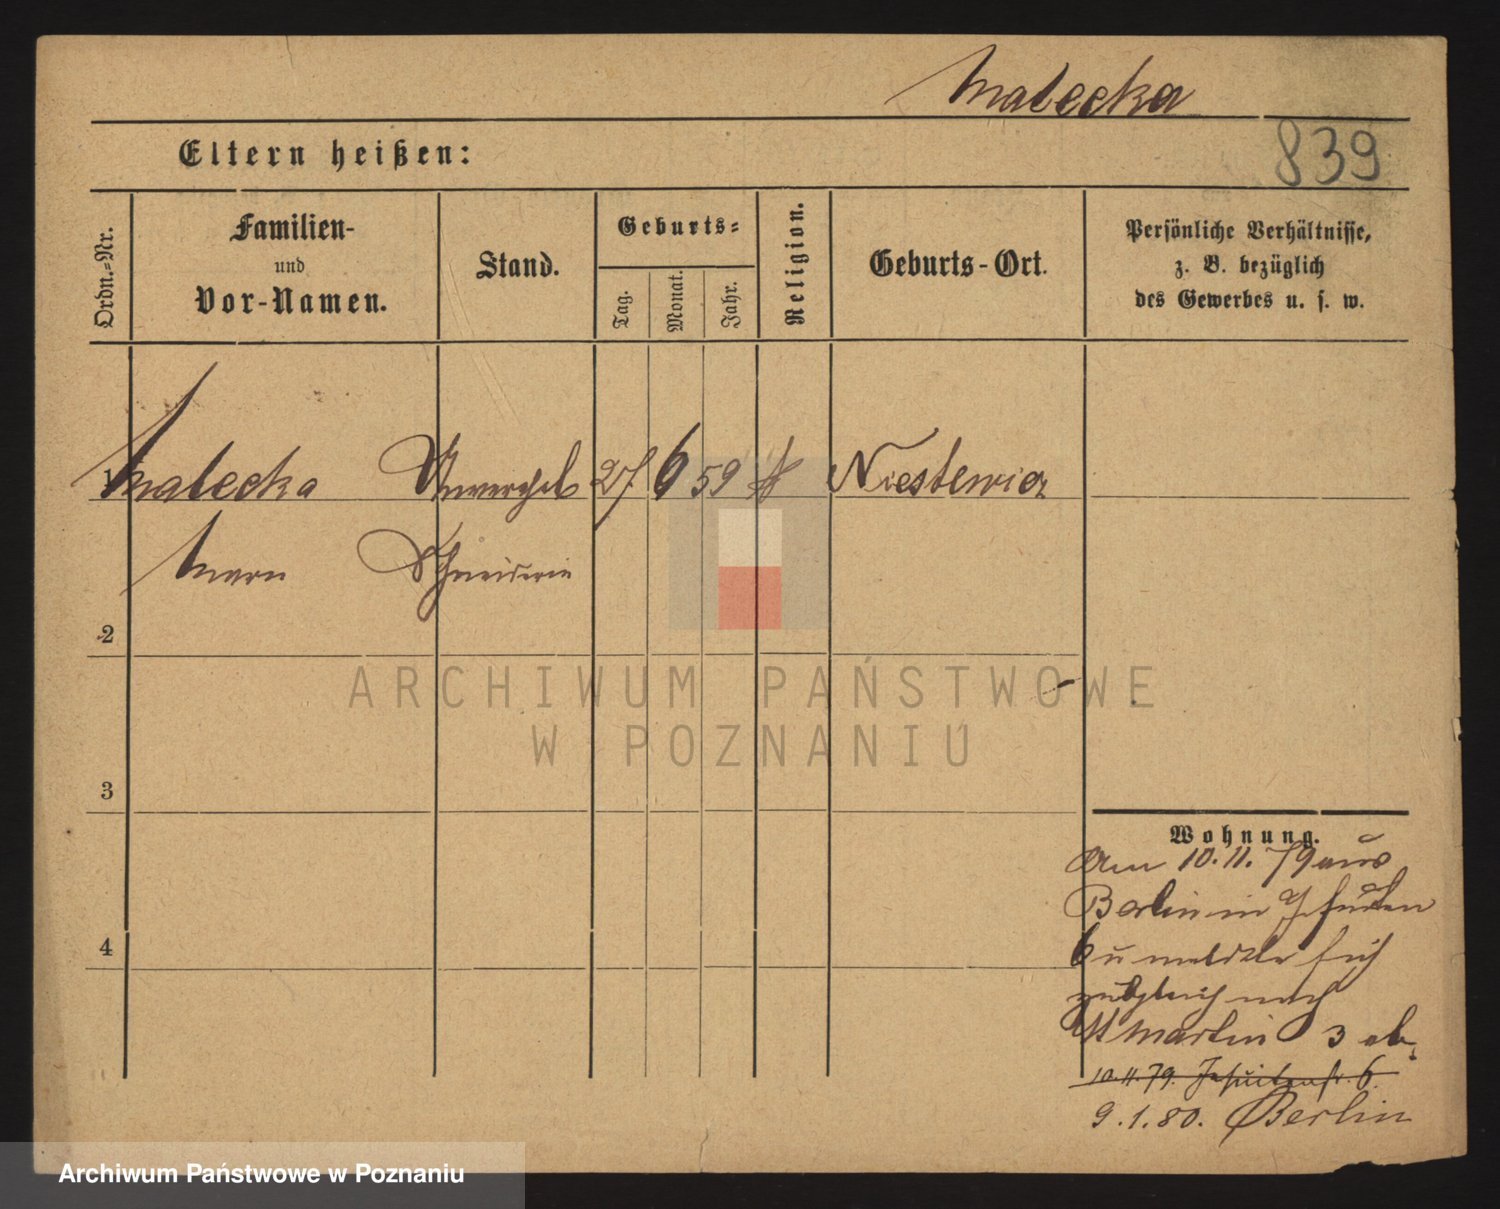 Malecka
839
Eltern heißen:
Ordn.-Nr.
Familien-
und
Vor-Namen.
Stand.
Geburts-
Tag.
Monat.
Jahr.
Religion.
Geburts-Ort.
Persönliche Verhältnisse,
z. B. bezüglich
des Gewerbes u. s. w.
1 Malecka Unverehel 27 6 59 k Niestewicz
Schneiderin
2
3
4
Wohnung.
Am 10.11.79 aus
Berlin in Jesuiten
6 u meldete sich
zugleich nach
St Martin 3 ab.
10.11.79. Jesuitenstr. 6.
9.1.80. Berlin
ARCHIWUM PAŃSTWOWE
W POZNANIU
Archiwum Państwowe w Poznaniu